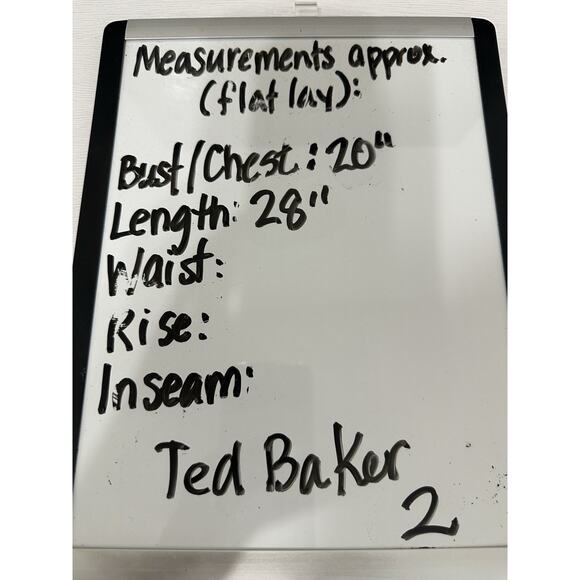 Measurements approx.
(flat lay):
Bust/Chest: 20"
Length: 28"
Waist:
Rise:
Inseam:
Ted Baker
2